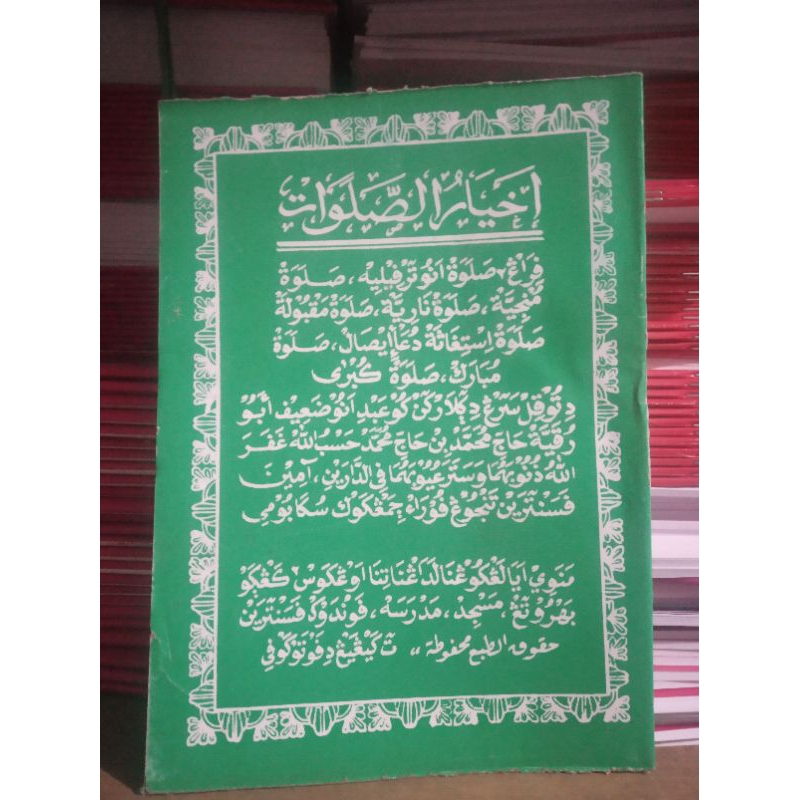 اَخْيَارُ الصَّلَوَاتْ
فَرَاغْ٢ صَلَوَةْ اَنُوْ تَرْفِيْلِيْهْ، صَلَوَةْ
مُنْجِيَّةْ، صَلَوَةْ نَارِيَةْ، صَلَوَةْ مَقْبُوْلَةْ
صَلَوَةْ اِسْتِغَاثَةْ دُعَاءْ اِيْصَالْ، صَلَوَةْ
مُبَارَكْ، صَلَوَةْ كُبْرٰى
دِتُوْقِلْ سَرْڠْ دِڮَلَارْكَنْ كُوْ عَبْدِ اَنُوْ ضَعِيْف اَبُوْ
رُقَيَّةْ حَاجْ مُحَمَّدْ بِنْ حَاجْ مُحَمَّدْ حَسْبُ اللهْ غَفَرَ
اللهُ ذُنُوْبَهُمَا وَسَتَرَ عُيُوْبَهُمَا فِى الدَّارَيْنِ، آمِيْنَ
فَسَنْتْرَيْنْ تَنْجُوْڠْ فُوْرَاءْ جِمَڠْكَوْكْ سُكَابُوْمِى
مَنَوِيْ اَيَا لَڠْكُوْڠْنَا لَدَاڠْنَا تِنَا اَوْڠْكَوْسْ٢ كَڠْڮَوْ
بَهْ رُوْتَڠْ، مَسْجِدْ، مَدْرَسَهْ، فَوْنْدَوْكْ فَسَنْتْرَيْنْ
حقوق الطبع محفوظة ،، تْ كَيْڠِيْڠْ دِفَوْتَوْكَوْفِي